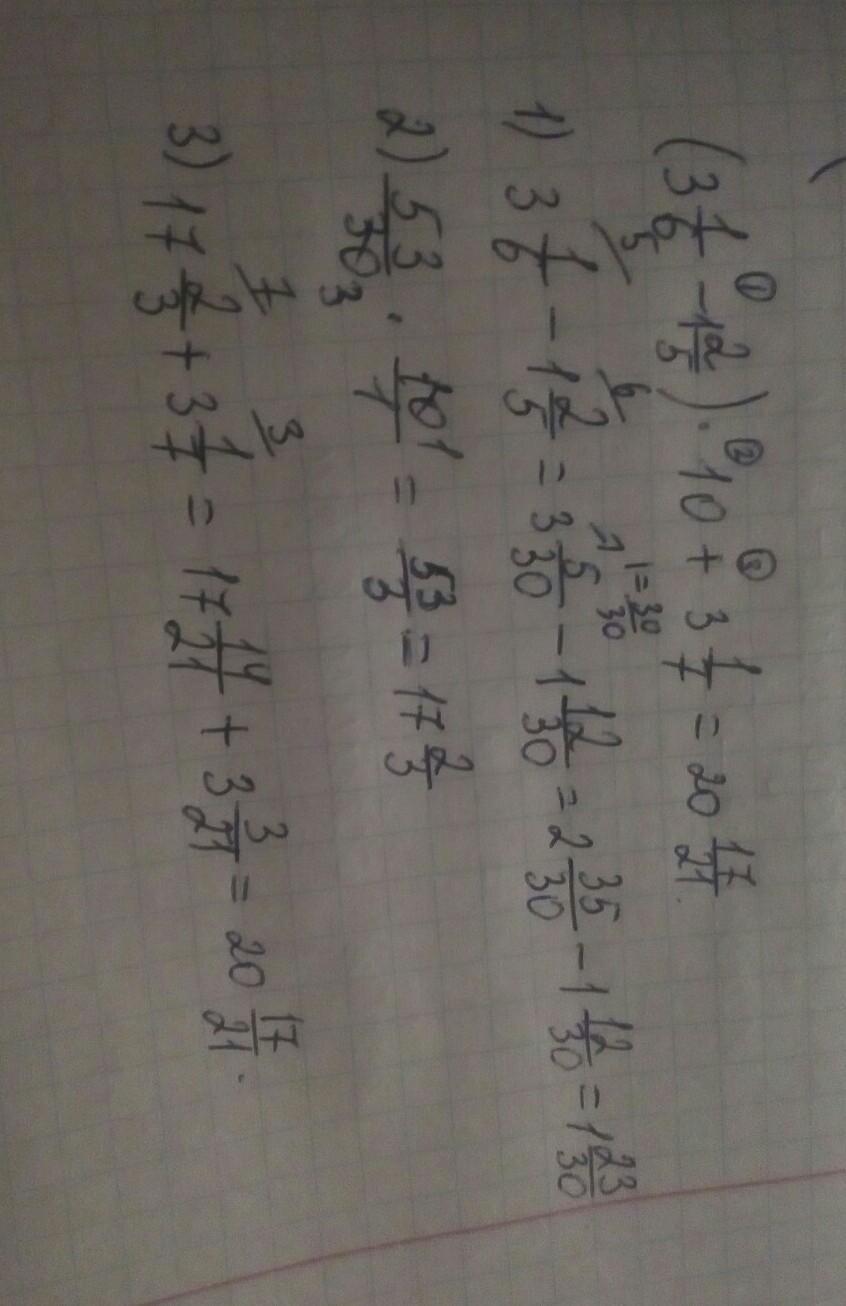 (3 1/6 - 1 2/5) · 10 + 3 1/7 = 20 17/21.
① ② ③
1) 3 1/6 - 1 2/5 = 3 5/30 - 1 12/30 = 2 35/30 - 1 12/30 = 1 23/30
5 6 1 = 30/30
2) 53/30 · 10/1 = 53/3 = 17 2/3
3 1
3) 17 2/3 + 3 1/7 = 17 14/21 + 3 3/21 = 20 17/21.
7 3